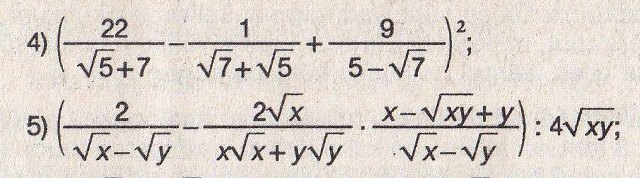 4) (22/(√5+7) − 1/(√7+√5) + 9/(5−√7))²;
5) (2/(√x−√y) − 2√x/(x√x+y√y) · (x−√xy+y)/(√x−√y)) : 4√xy;